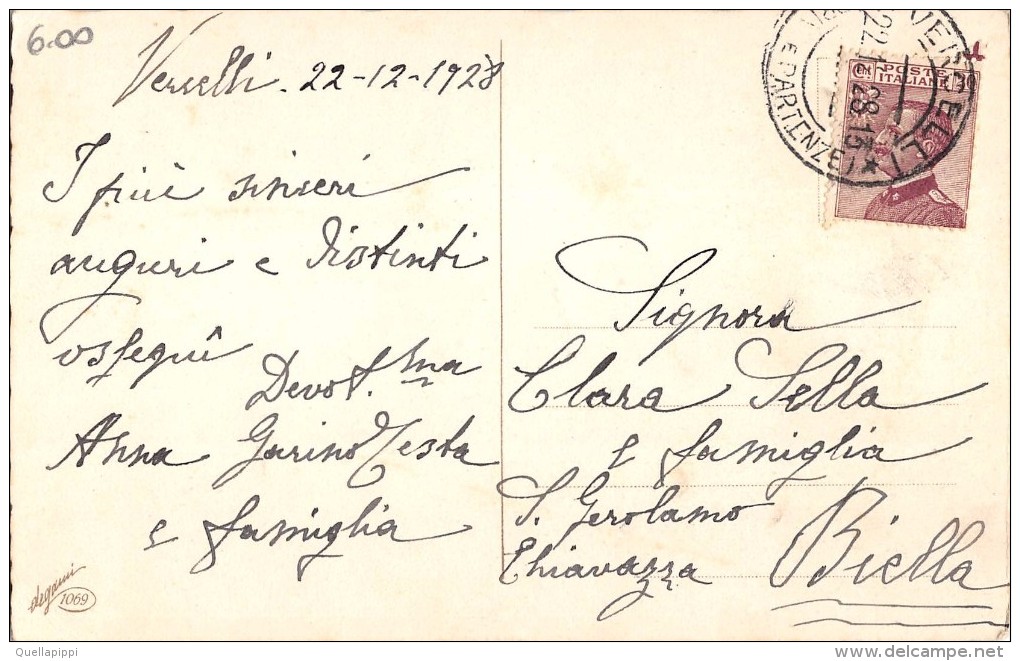 6.00
Vercelli. 22-12-1928
I più sinseri
auguri e distinti
ossequî
Devot.ma
Anna Garino Testa
e famiglia
degami
1069
VERCELLI
E PARTENZE)
22.12.28.13
POSTE
ITALIANE
CENT
30
Signora
Clara Sella
e famiglia
S. Gerolamo
Chiavazza Biella
Quellapippi
delcampe.net